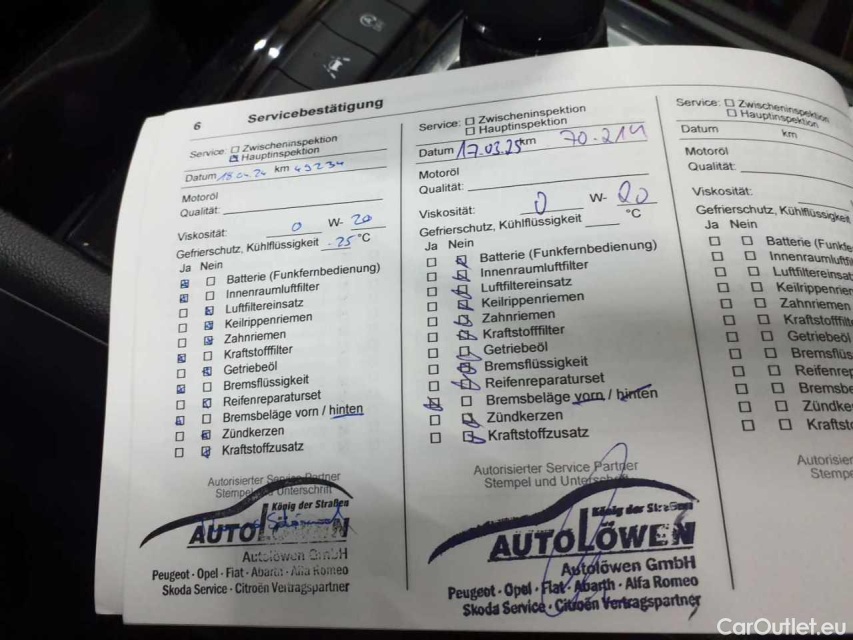 6 Servicebestätigung
Service: Zwischeninspektion
Hauptinspektion
Datum 18.04.24 km 45234
Motoröl
Qualität:
Viskosität: 0 W- 20
Gefrierschutz, Kühlflüssigkeit -25 °C
Ja Nein
Batterie (Funkfernbedienung)
Innenraumluftfilter
Luftfiltereinsatz
Keilrippenriemen
Zahnriemen
Kraftstofffilter
Getriebeöl
Bremsflüssigkeit
Reifenreparaturset
Bremsbeläge vorn / hinten
Zündkerzen
Kraftstoffzusatz
Autorisierter Service Partner
Stempel und Unterschrift
König der Straßen
AUTOLÖWEN
Autolöwen GmbH
Peugeot · Opel · Fiat · Abarth · Alfa Romeo
Skoda Service · Citroën Vertragspartner
Service: Zwischeninspektion
Hauptinspektion
Datum 17.03.25 km 70.214
Motoröl
Qualität:
Viskosität: 0 W- 20
Gefrierschutz, Kühlflüssigkeit °C
Ja Nein
Batterie (Funkfernbedienung)
Innenraumluftfilter
Luftfiltereinsatz
Keilrippenriemen
Zahnriemen
Kraftstofffilter
Getriebeöl
Bremsflüssigkeit
Reifenreparaturset
Bremsbeläge vorn / hinten
Zündkerzen
Kraftstoffzusatz
Autorisierter Service Partner
Stempel und Unterschrift
König der Straßen
AUTOLÖWEN
Autolöwen GmbH
Peugeot · Opel · Fiat · Abarth · Alfa Romeo
Skoda Service · Citroën Vertragspartner
Service: Zwischeninspektion
Hauptinspektion
Datum km
Motoröl
Qualität:
Viskosität:
Gefrierschutz, Kühlflüssigkeit
Ja Nein
Batterie (Funkfe
Innenraumluftfi
Luftfiltereinsat
Keilrippenrier
Zahnriemen
Kraftstofffilt
Getriebeöl
Bremsflüs
Reifenrep
Bremsbe
Zündke
Kraftst
Autorisier
Stempe
CarOutlet.eu